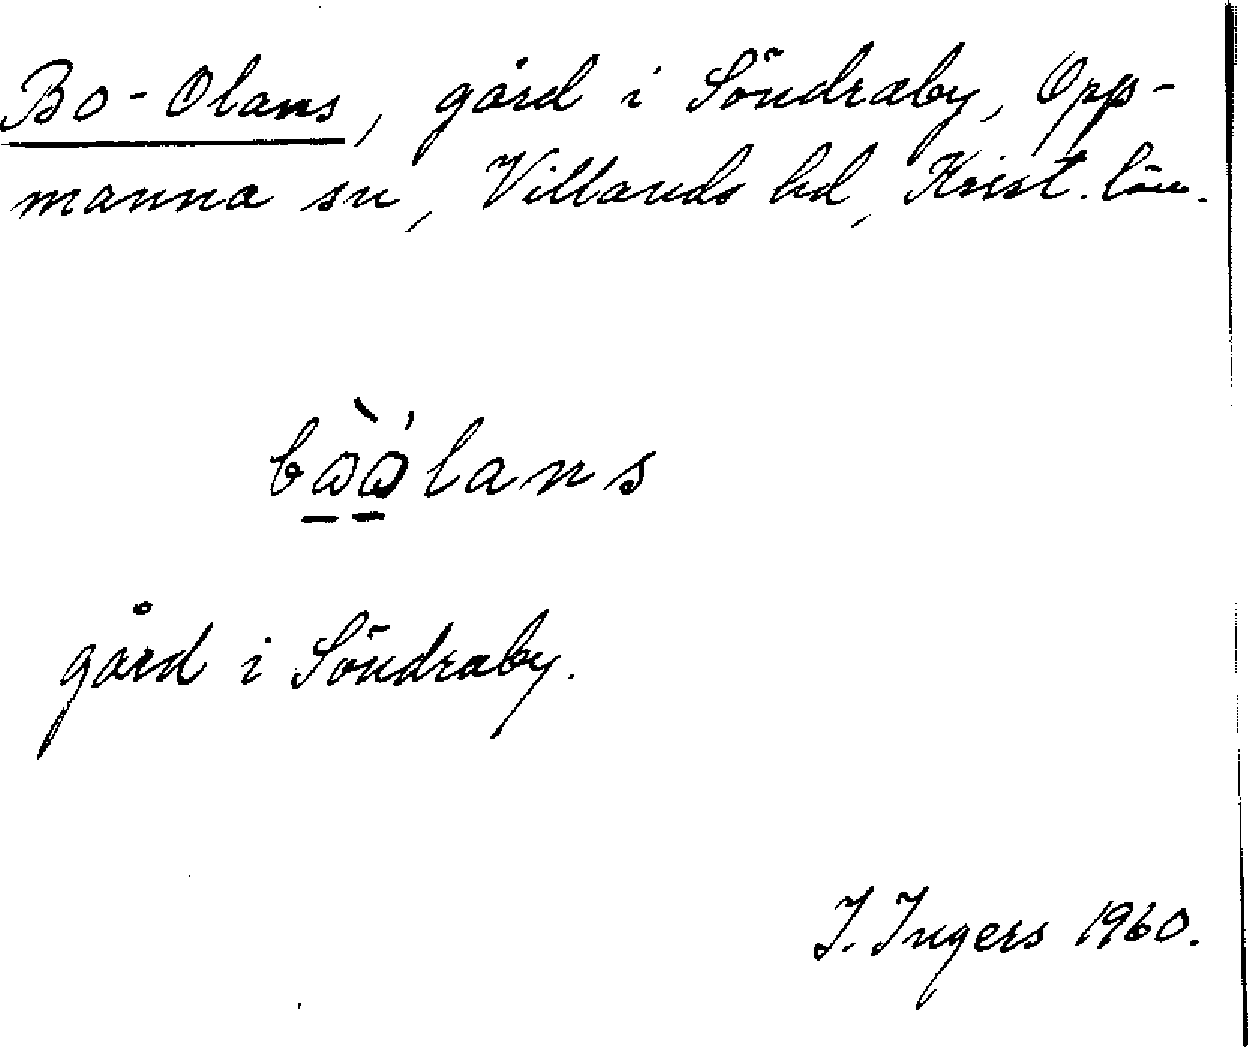 Bo-Olans, gård i Söndraby, Opp-
manna sn, Villands hd, Krist. län.
gård i Söndraby.
I. Ingers 1960.